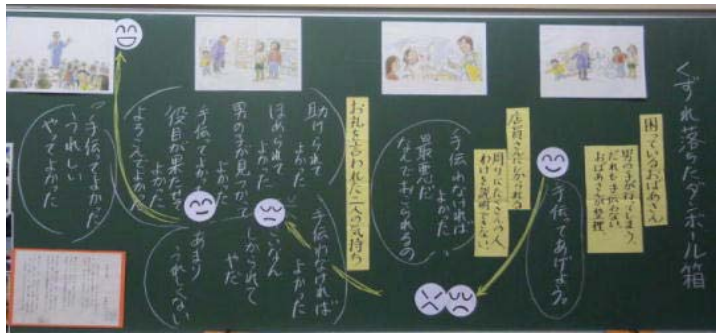 くずれ落ちたダンボール箱
困っているおばあさん
男の子が行ってしまう。
だれも手伝わない。
おばあさんが整理、
手伝ってあげよう。
店員さんにしかられる
周りにたくさんの人、
わけを説明できない、
手伝わなければ
よかった、
最悪だ
なんでおこられるの
お礼を言われた二人の気持ち
助けられて
よかった
ほめられて
よかった
男の子が見つかって
よかった
手伝ってよかった
役目が果たせて
よかった
よろこんでよかった
手伝わなければ
よかった
しかられて
やだ
あまり
うれしくない
「手伝ってよかった
うれしい
やってよかった